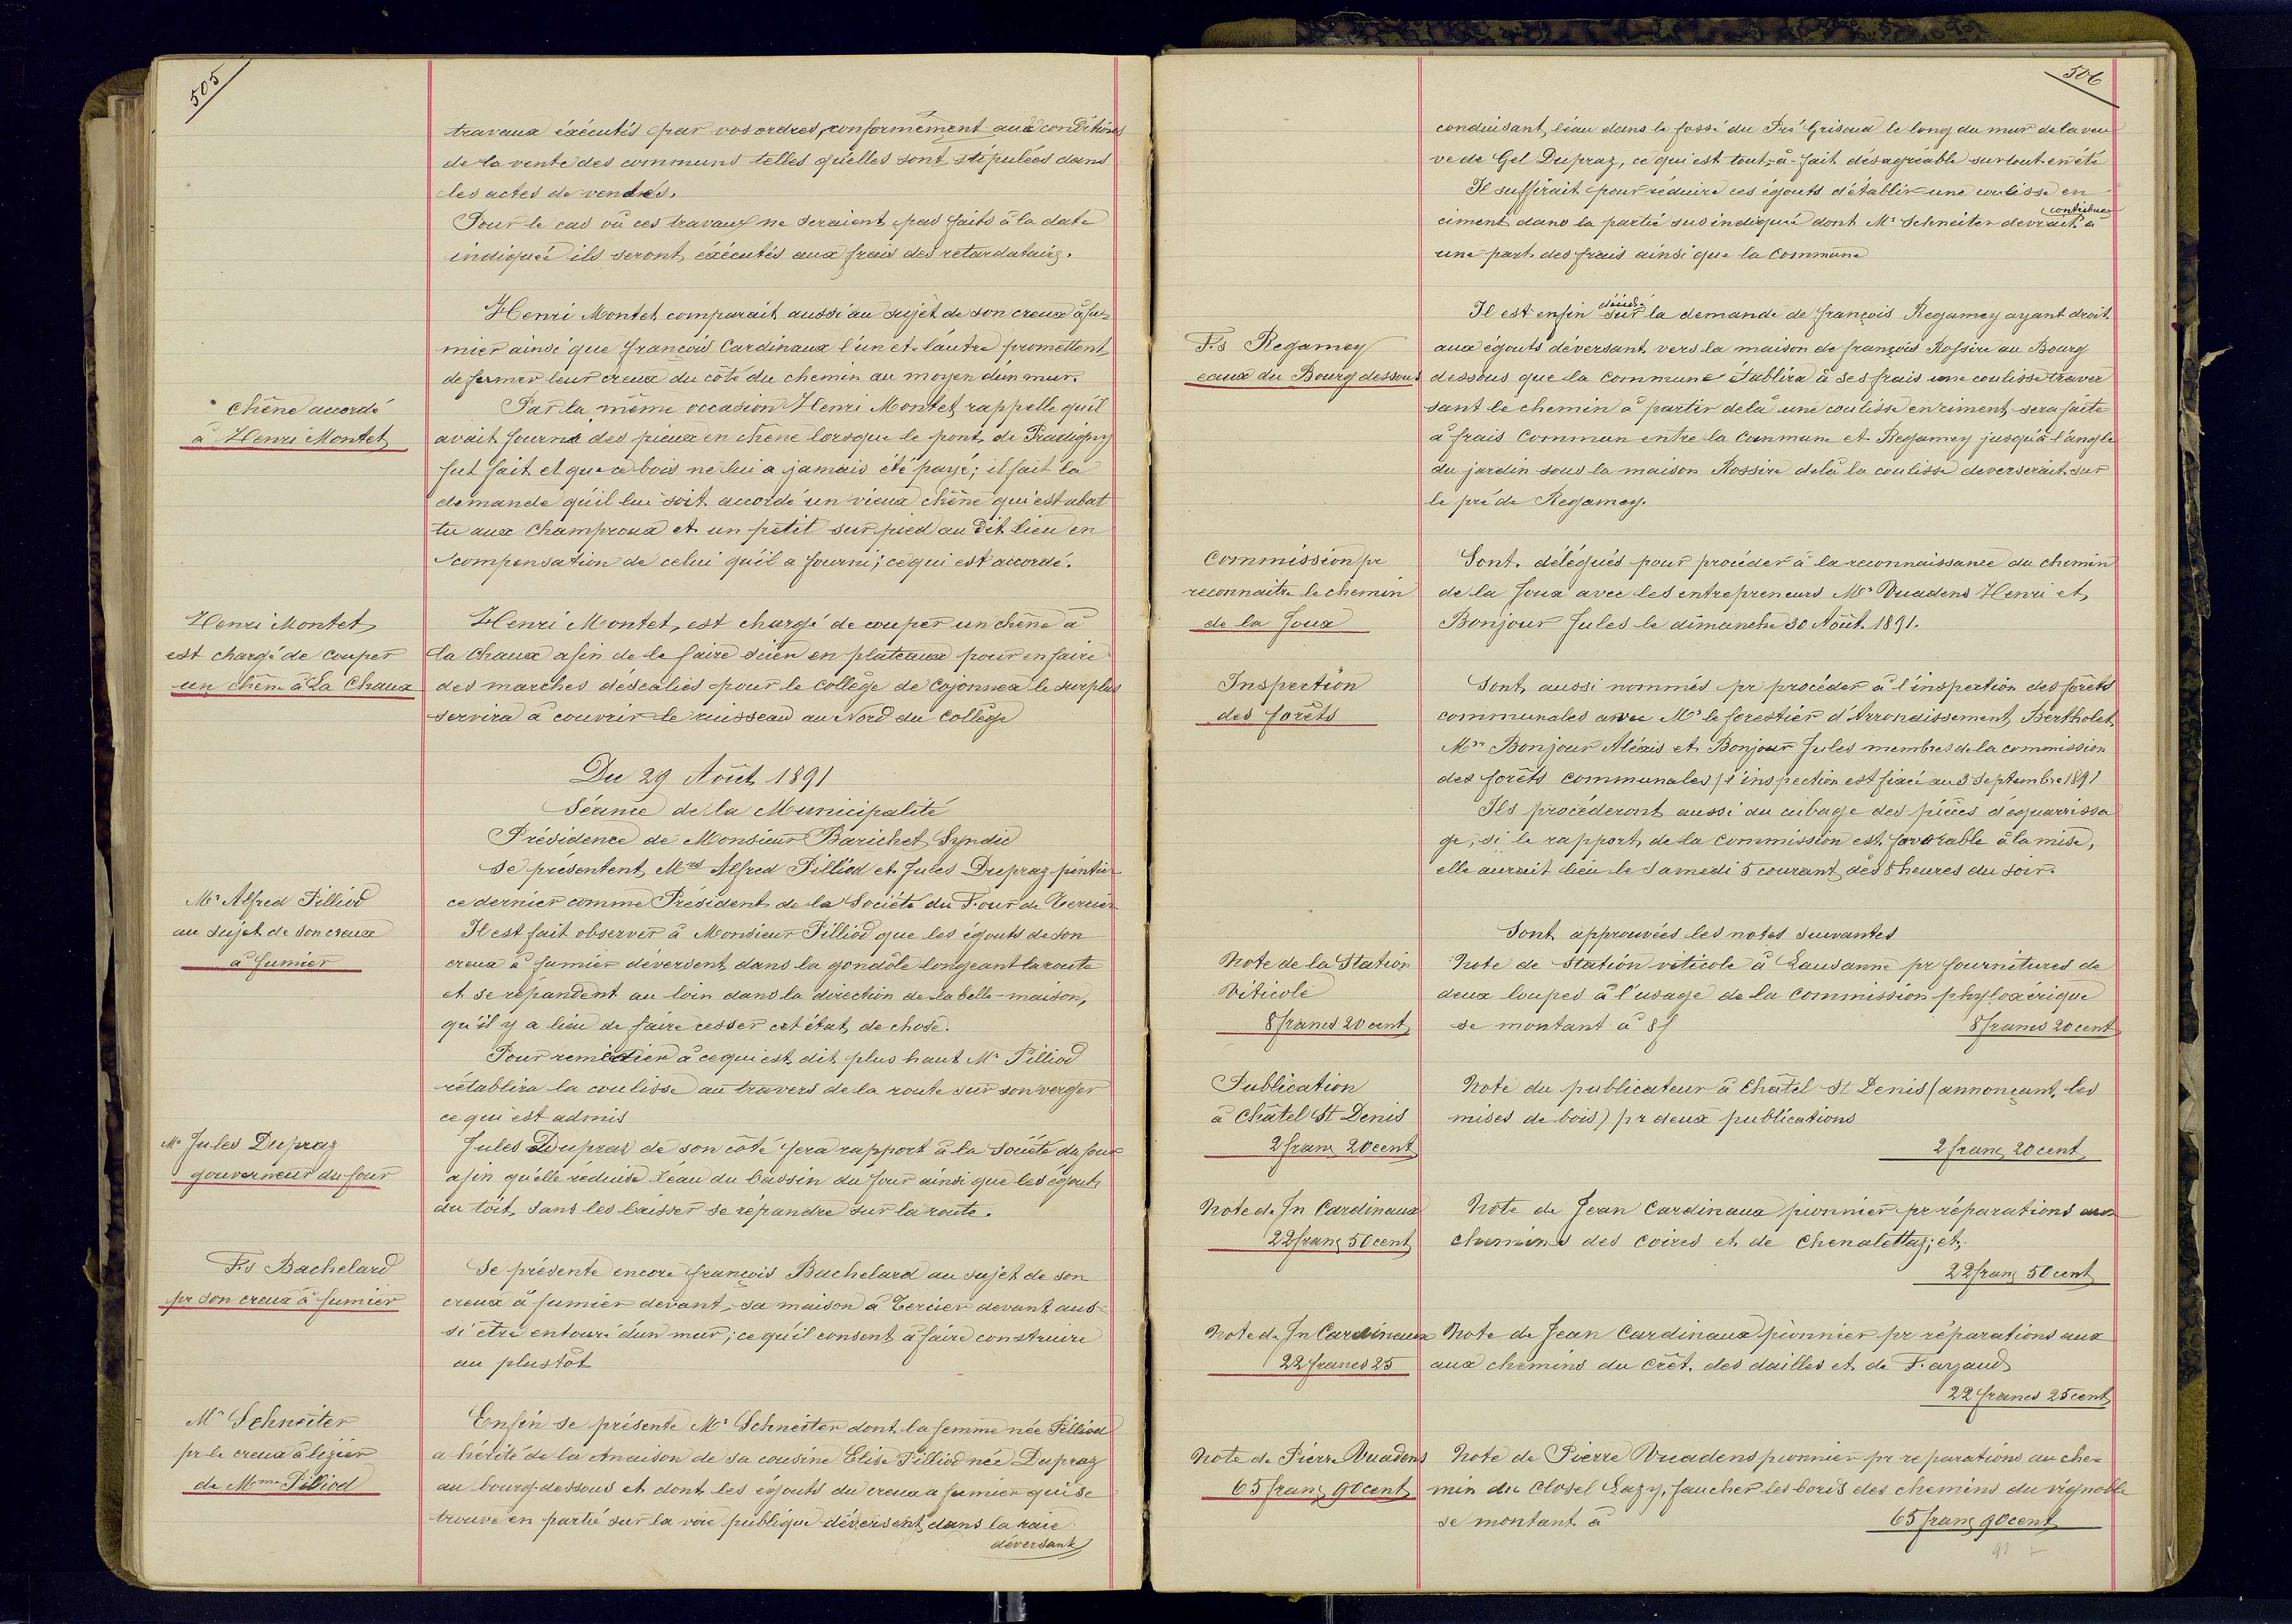 505
travaux éxécutés par vos ordres, conformément aux conditions
de la vente des communs telles qu'elles sont stipulées dans
les actes de ventes.
Pour le cas où ces travaux ne seraient pas faits à la date
indiquée ils seront éxécutés aux frais des retardataires.
Henri Montet comparait aussi au sujet de son creux à fu-
mier ainsi que françois Cardinaux l'un et l'autre promettent
de fermer leur creux du côté du chemin au moyen d'un mur.
Chêne accordé
à Henri Montet
Par la même occasion Henri Montet rappelle qu'il
avait fourni des pieux en chêne lorsque le pont de Pradigny
fut fait et que ce bois ne lui a jamais été payé; il fait la
demande qu'il lui soit accordé un vieux chêne qui est abat
tu aux Champroux et un petit sur pied au dit lieu en
compensation de celui qu'il a fourni; ce qui est accordé.
Henri Montet
est chargé de couper
un chêne à La Chaux
Henri Montet, est chargé de couper un chêne à
la Chaux afin de le faire scier en plateaux pour en faire
des marches d'escaliers pour le collège de Cojonnex le surplus
servira à couvrir le ruisseau au Nord du Collège
Du 29 Août 1891
Séance de la Municipalité
Présidence de Monsieur Barichet Syndic
Mr Alfred Pilliod
au sujet de son creux
à fumier
Se présentent Mrs Alfred Pilliod et Jules Dupraz pintier
ce dernier comme Président de la Société du Four de Tercier
Il est fait observer à Monsieur Pilliod que les égouts de son
creux à fumier déversent dans la gondôle longeant la route
et se répandent au loin dans la direction de la belle-maison,
qu'il y a lieu de faire cesser cet état de chose.
Pour remédier à ce qui est dit plus haut Mr Pilliod
rétablira la coulisse au travers de la route sur son verger
ce qui est admis
Mr Jules Dupraz
gouverneur du four
Jules Dupraz de son côté fera rapport à la Société du four
afin qu'elle réduise l'eau du bassin du four ainsi que les égouts
du toit, sans les laisser se répandre sur la route.
Fs Bachelard
pr son creux à fumier
Se présente encore françois Bachelard au sujet de son
creux à fumier devant sa maison à Tercier devant aus-
si être entouré d'un mur; ce qu'il consent à faire construire
au plustôt
Mr Schneiter
pr le creux à lizier
de Mme Pilliod
Enfin se présente Mr Schneiter dont la femme née Pilliod
a hérité de la maison de sa cousine Elise Pilliod née Dupraz
au bourg-dessous et dont les égouts du creux à fumier qui se
trouve en partie sur la voie publique déversent dans la raie
déversant
506
conduisant l'eau dans le fossé du Pré Grisoud le long du mur de la veu
ve de Gel Dupraz, ce qui est tout-à-fait désagréable surtout en été
Il suffirait pour réduire ces égouts d'établir une coulisse en
ciment dans la partie sus indiquée dont Mr Schneiter devrait contribuer à
une part des frais ainsi que la Commune
Fs Regamey
eaux du Bourg dessous
Il est enfin décidé sur la demande de françois Regamey ayant droit
aux égouts déversant vers la maison de françois Rossire au Bourg
dessous que la Commune établira à ses frais une coulisse traver
sant le chemin à partir delà une coulisse en ciment sera faite
à frais Commun entre la Commune et Regamey jusqu'à l'angle
du jardin sous la maison Rossire delà la coulisse deverserait sur
le pré de Regamey.
Commission pr
reconnaitre le chemin
de la Joux
Sont délégués pour procéder à la reconnaissance du chemin
de la Joux avec les entrepreneurs Mrs Vuadens Henri et
Bonjour Jules le dimanche 30 Août 1891.
Inspection
des forêts
Sont aussi nommés pr procéder à l'inspection des forêts
communales avec Mr le forestier d'Arrondissement Bertholet
Mrs Bonjour Aléxis et Bonjour Jules membres de la commission
des forêts communales, l'inspection est fixée au 3 Septembre 1891
Ils procéderont aussi au cubage des pièces d'équarrissa
ge, si le rapport de la Commission est favorable à la mise,
elle aurait lieu le Samedi 5 courant dès 8 heures du soir.
Sont approuvées les notes suivantes
Note de la Station
Viticole
8 francs 20 cent
Note de Station viticole à Lausanne pr fournitures de
deux loupes à l'usage de la Commission phyloxérique
se montant à 8f
8 francs 20 cent
Publication
à Châtel St Denis
2 franc 20 cent
Note du publicateur à Châtel St Denis (annonçant les
mises de bois) pr deux publications
2 franc 20 cent
Note de Jn Cardinaux
22 franc 50 cent
Note de Jean Cardinaux pionnier pr réparations aux
chemins des Coires et de Chenalettaz; et
22 franc 50 cent
Note de Jn Cardinaux
22 francs 25
Note de Jean Cardinaux pionnier pr réparations aux
aux chemins du Crêt, des dailles et de
22 francs 25 cent
Note de Pierre Vuadens
65 franc 90 cent
Note de Pierre Vuadens pionnier pr reparations au che-
min du Closel Lazy, faucher les bords des chemins du vignoble
se montant à
65 franc 90 cent